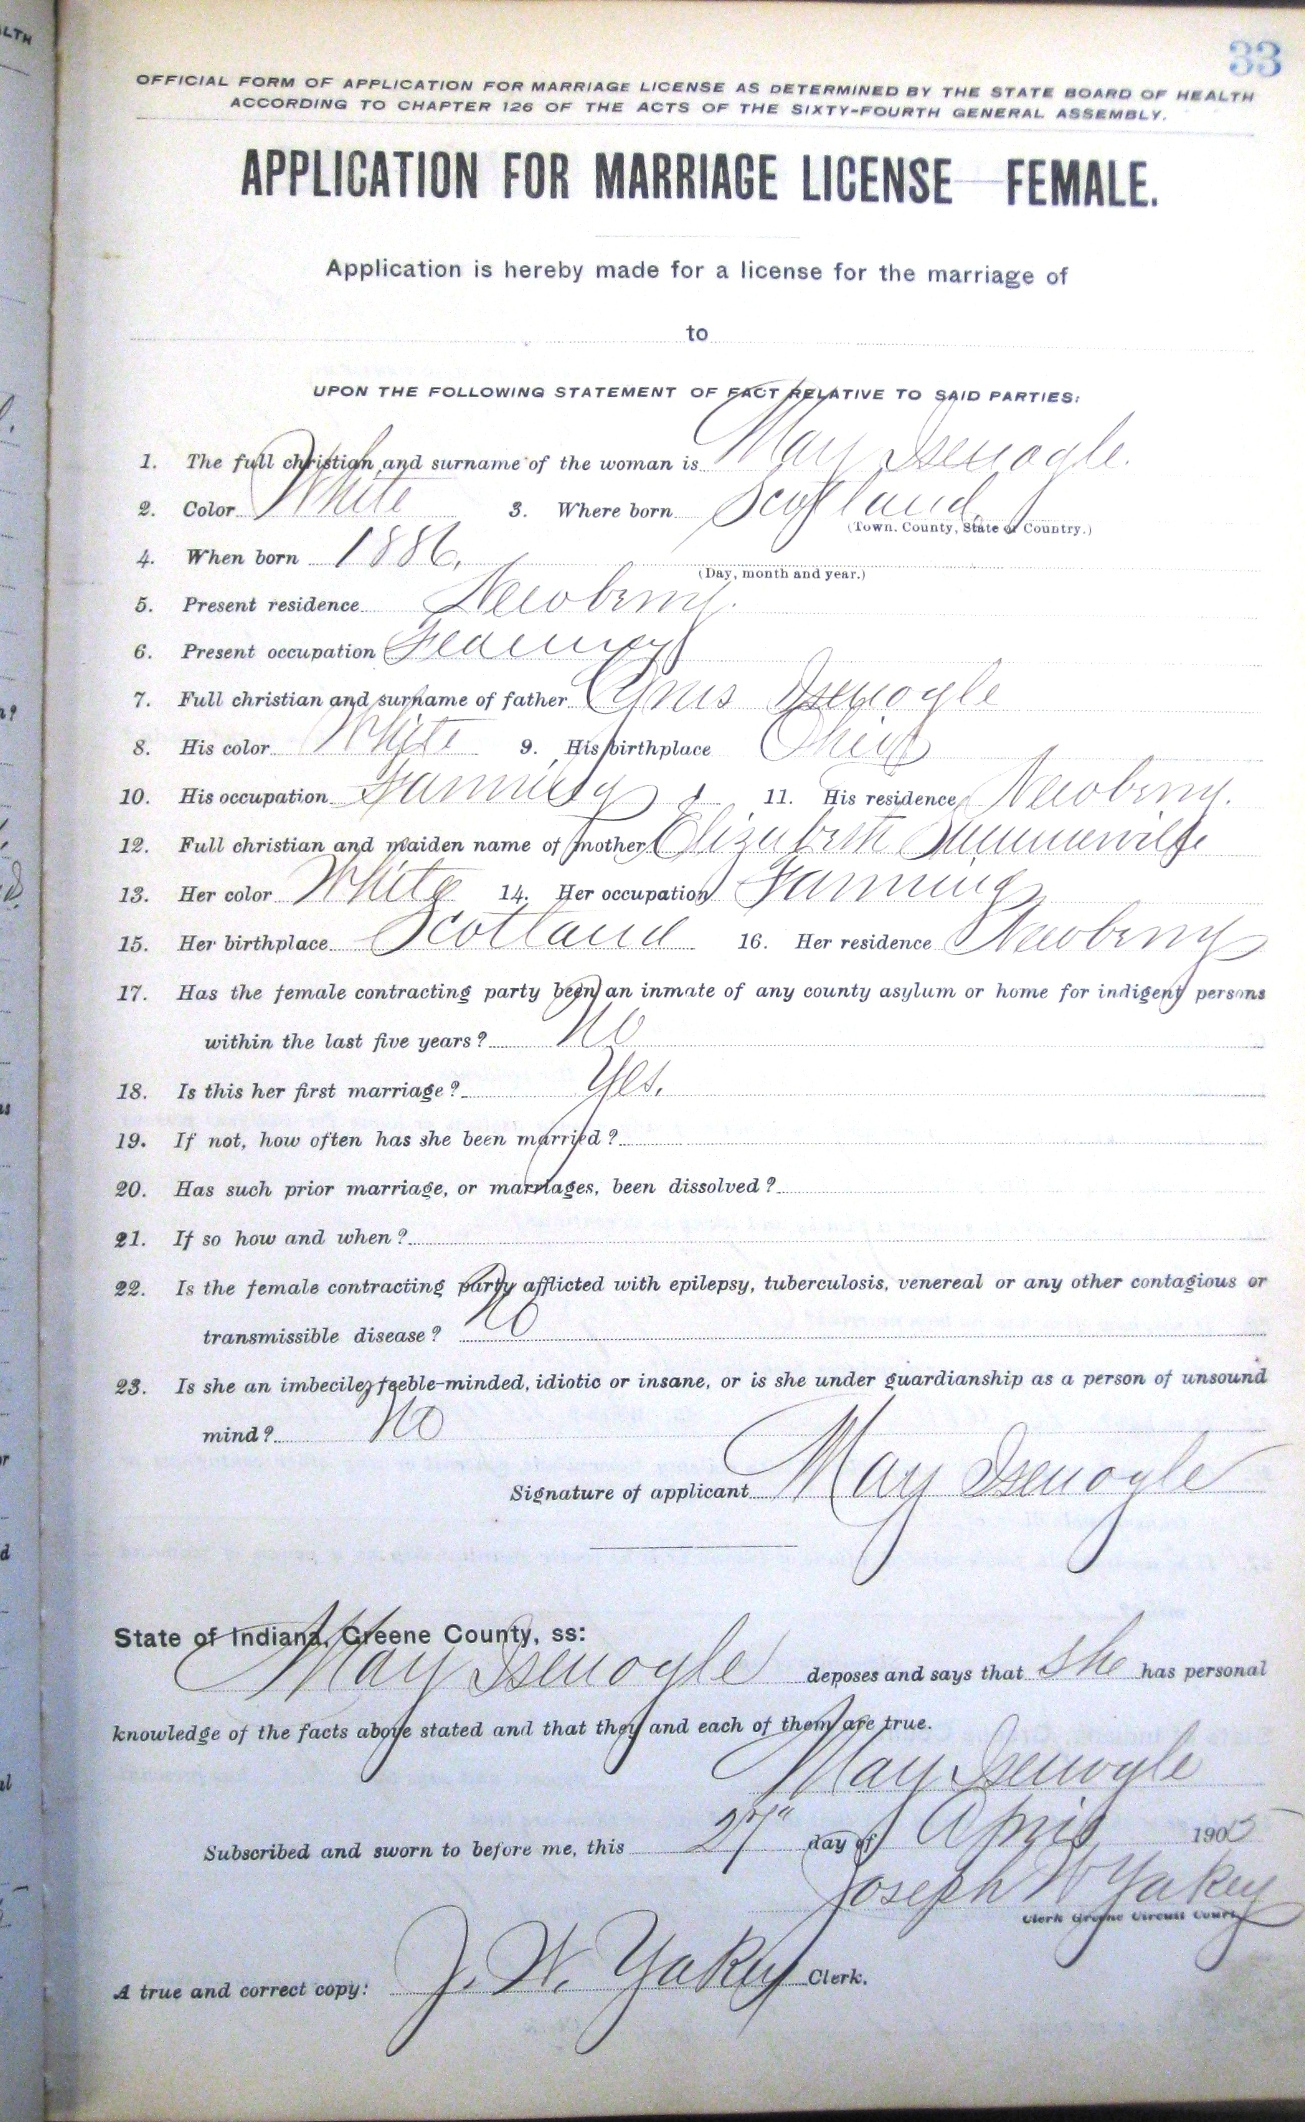 33
OFFICIAL FORM OF APPLICATION FOR MARRIAGE LICENSE AS DETERMINED BY THE STATE BOARD OF HEALTH
ACCORDING TO CHAPTER 126 OF THE ACTS OF THE SIXTY-FOURTH GENERAL ASSEMBLY.
APPLICATION FOR MARRIAGE LICENSE—FEMALE.
Application is hereby made for a license for the marriage of
to
UPON THE FOLLOWING STATEMENT OF FACT RELATIVE TO SAID PARTIES:
1. The full christian and surname of the woman is May Isenogle.
2. Color White 3. Where born Scotland,
(Town, County, State or Country.)
4. When born 1886.
(Day, month and year.)
5. Present residence Newberry.
6. Present occupation
7. Full christian and surname of father Cyrus Isenogle
8. His color White 9. His birthplace Ohio
10. His occupation Farming 11. His residence Newberry.
12. Full christian and maiden name of mother Elizabeth Summerville
13. Her color White 14. Her occupation Farming
15. Her birthplace Scotland 16. Her residence Newberry
17. Has the female contracting party been an inmate of any county asylum or home for indigent persons
within the last five years? No
18. Is this her first marriage? Yes.
19. If not, how often has she been married?
20. Has such prior marriage, or marriages, been dissolved?
21. If so how and when?
22. Is the female contracting party afflicted with epilepsy, tuberculosis, venereal or any other contagious or
transmissible disease? No
23. Is she an imbecile, feeble-minded, idiotic or insane, or is she under guardianship as a person of unsound
mind? No
Signature of applicant May Isenogle
State of Indiana, Greene County, ss:
May Isenogle deposes and says that She has personal
knowledge of the facts above stated and that they and each of them are true.
May Isenogle
Subscribed and sworn to before me, this 27" day of April 1905
Joseph W Yakey
Clerk Greene Circuit Court
A true and correct copy: J. W. Yakey Clerk.